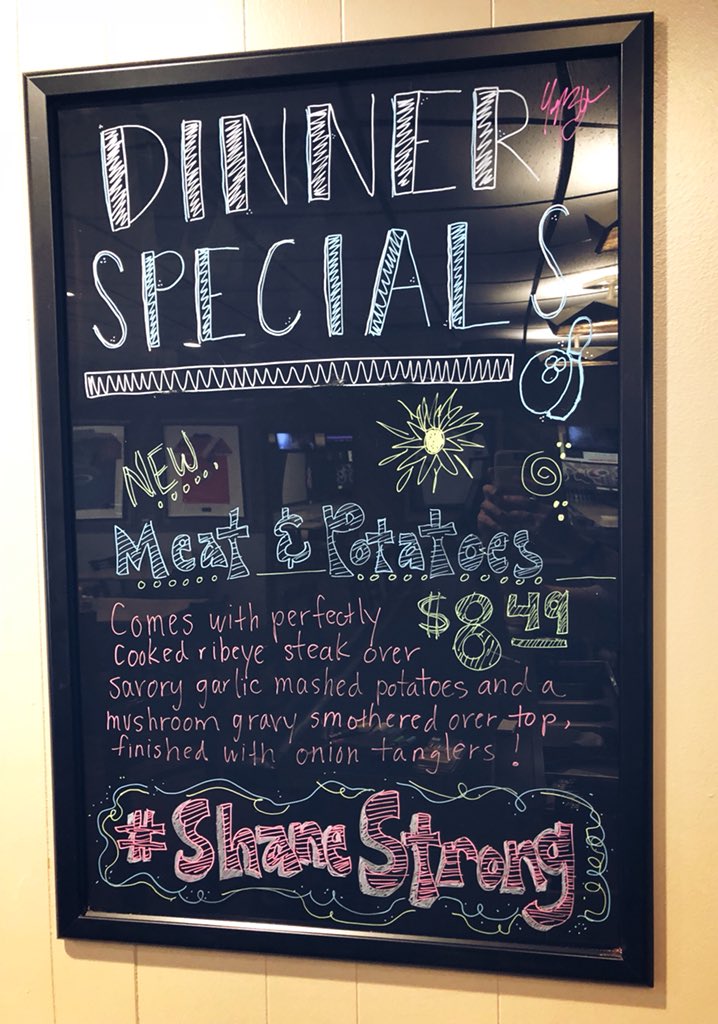 DINNER
SPECIALS
NEW
Meat & Potatoes
$8.49
Comes with perfectly
cooked ribeye steak over
savory garlic mashed potatoes and a
mushroom gravy smothered over top,
finished with onion tanglers!
#Shane Strong